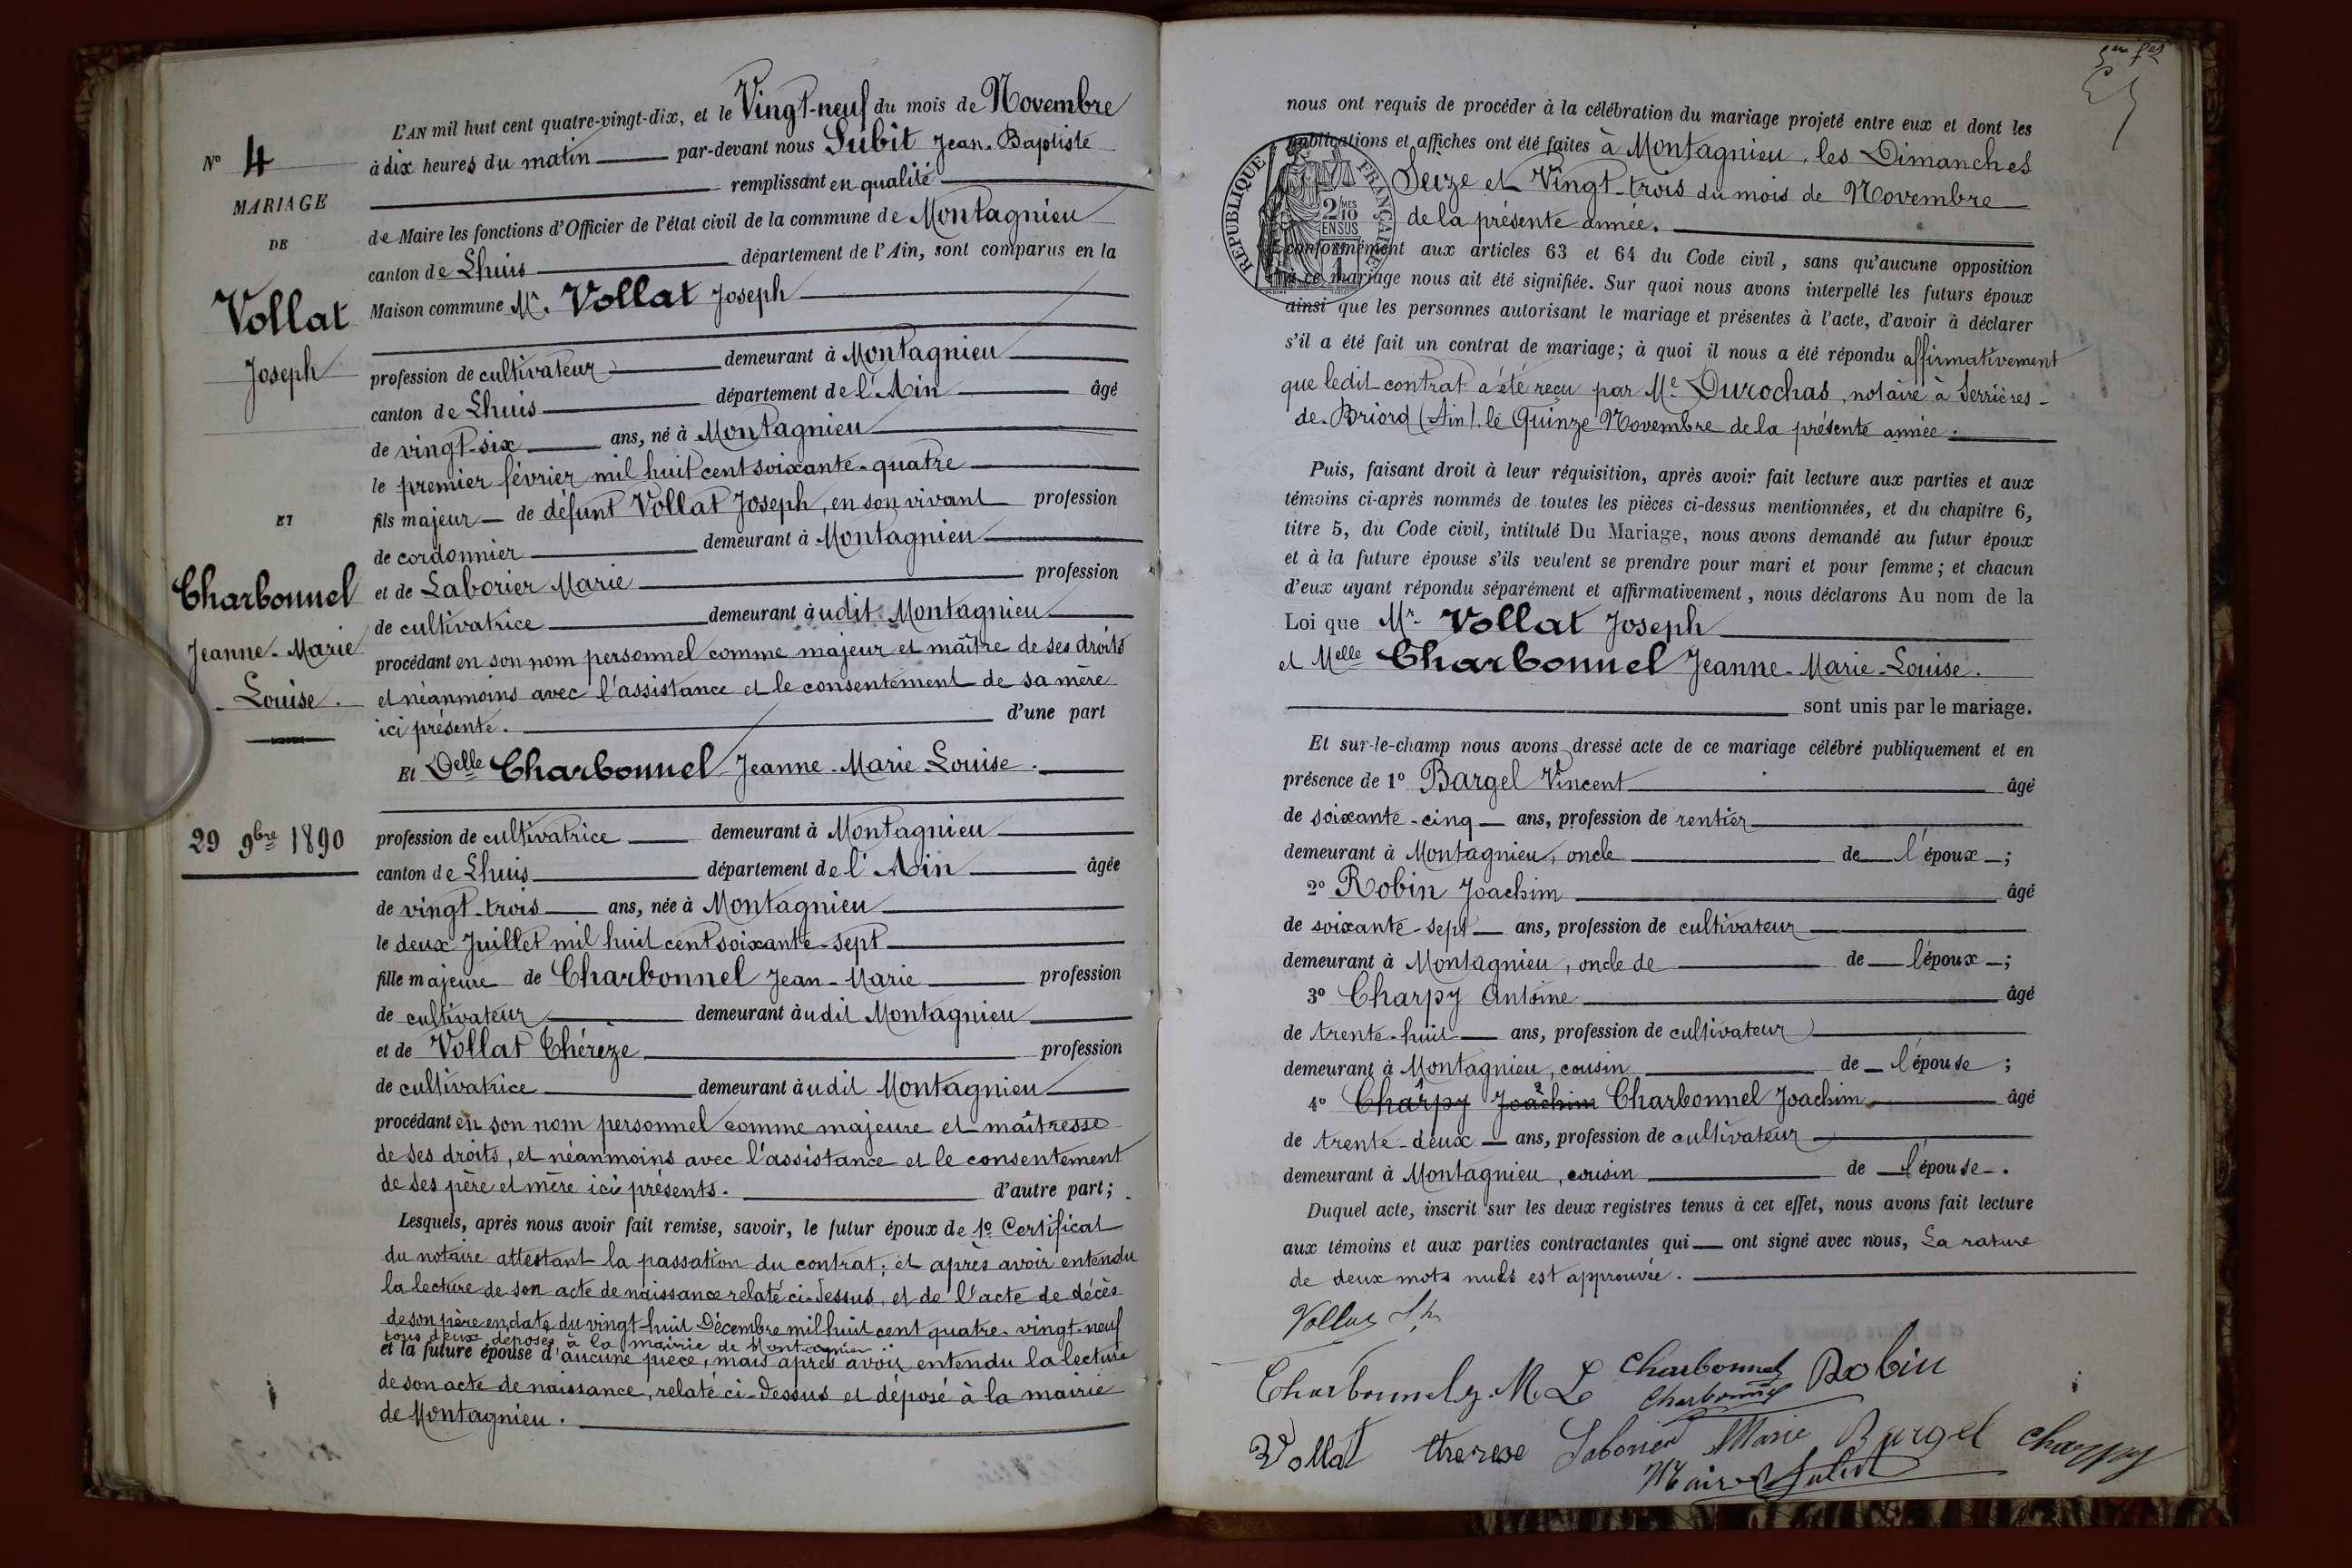 L'AN mil huit cent quatre-vingt-dix, et le Vingt-neuf du mois de Novembre
à dix heures du matin par-devant nous Subit Jean-Baptiste
remplissant en qualité
de Maire les fonctions d'Officier de l'état civil de la commune de Montagnieu
canton de Lhuis département de l'Ain, sont comparus en la
Maison commune Mr. Vollat Joseph
profession de cultivateur demeurant à Montagnieu
canton de Lhuis département de l'Ain âgé
de vingt-six ans, né à Montagnieu
le premier février mil huit cent soixante-quatre
fils majeur de défunt Vollat Joseph, en son vivant profession
de cordonnier demeurant à Montagnieu
et de Laborier Marie profession
de cultivatrice demeurant à udit Montagnieu
procédant en son nom personnel comme majeur et maître de ses droits
et néanmoins avec l'assistance et le consentement de sa mère
ici présente. d'une part
Et Delle Charbonnel Jeanne-Marie-Louise.
profession de cultivatrice demeurant à Montagnieu
canton de Lhuis département de l'Ain âgée
de vingt-trois ans, née à Montagnieu
le deux Juillet mil huit cent soixante-sept
fille majeure de Charbonnel Jean-Marie profession
de cultivateur demeurant à udit Montagnieu
et de Vollat Thérèze profession
de cultivatrice demeurant à udit Montagnieu
procédant en son nom personnel comme majeure et maîtresse
de ses droits, et néanmoins avec l'assistance et le consentement
de ses père et mère ici présents. d'autre part;
Lesquels, après nous avoir fait remise, savoir, le futur époux de 1º Certificat
du notaire attestant la passation du contrat; et après avoir entendu
la lecture de son acte de naissance relaté ci-dessus, et de l'acte de décès
de son père en date du vingt-huit Décembre mil huit cent quatre-vingt-neuf
tous deux déposés à la mairie de Montagnieu
et la future épouse d'aucune pièce, mais après avoir entendu la lecture
de son acte de naissance, relaté ci-dessus et déposé à la mairie
de Montagnieu.
Nº 4
MARIAGE
DE
Vollat
Joseph
ET
Charbonnel
Jeanne-Marie
-Louise.
29 9bre 1890
nous ont requis de procéder à la célébration du mariage projeté entre eux et dont les
publications et affiches ont été faites à Montagnieu, les Dimanches
Seize et Vingt-trois du mois de Novembre
de la présente année.
conformément aux articles 63 et 64 du Code civil, sans qu'aucune opposition
à ce mariage nous ait été signifiée. Sur quoi nous avons interpellé les futurs époux
ainsi que les personnes autorisant le mariage et présentes à l'acte, d'avoir à déclarer
s'il a été fait un contrat de mariage; à quoi il nous a été répondu affirmativement
que ledit contrat a été reçu par Me Durochas, notaire à Serrières-
de-Briord (Ain). le Quinze Novembre de la présente année.
RÉPUBLIQUE FRANÇAISE
2 MES
10
EN SUS
Puis, faisant droit à leur réquisition, après avoir fait lecture aux parties et aux
témoins ci-après nommés de toutes les pièces ci-dessus mentionnées, et du chapitre 6,
titre 5, du Code civil, intitulé Du Mariage, nous avons demandé au futur époux
et à la future épouse s'ils veulent se prendre pour mari et pour femme; et chacun
d'eux ayant répondu séparément et affirmativement, nous déclarons Au nom de la
Loi que Mr. Vollat Joseph
et Melle Charbonnel Jeanne-Marie-Louise.
sont unis par le mariage.
Et sur-le-champ nous avons dressé acte de ce mariage célébré publiquement et en
présence de 1º Bargel Vincent âgé
de soixante-cinq ans, profession de rentier
demeurant à Montagnieu, oncle de l'époux;
2º Robin Joachim âgé
de soixante-sept ans, profession de cultivateur
demeurant à Montagnieu, oncle de de l'époux;
3º Charpy Antoine âgé
de trente-huit ans, profession de cultivateur
demeurant à Montagnieu, cousin de l'épouse;
4º Charpy Joachim Charbonnel Joachim âgé
de trente-deux ans, profession de cultivateur
demeurant à Montagnieu, cousin de l'épouse.
Duquel acte, inscrit sur les deux registres tenus à cet effet, nous avons fait lecture
aux témoins et aux parties contractantes qui ont signé avec nous, La rature
de deux mots nuls est approuvée.
Vollat
Charbonnel J. M. L Charbonnel Robin
Charbonnel
Vollat therese Laborier Marie Bargel Charpy
Maire Subit